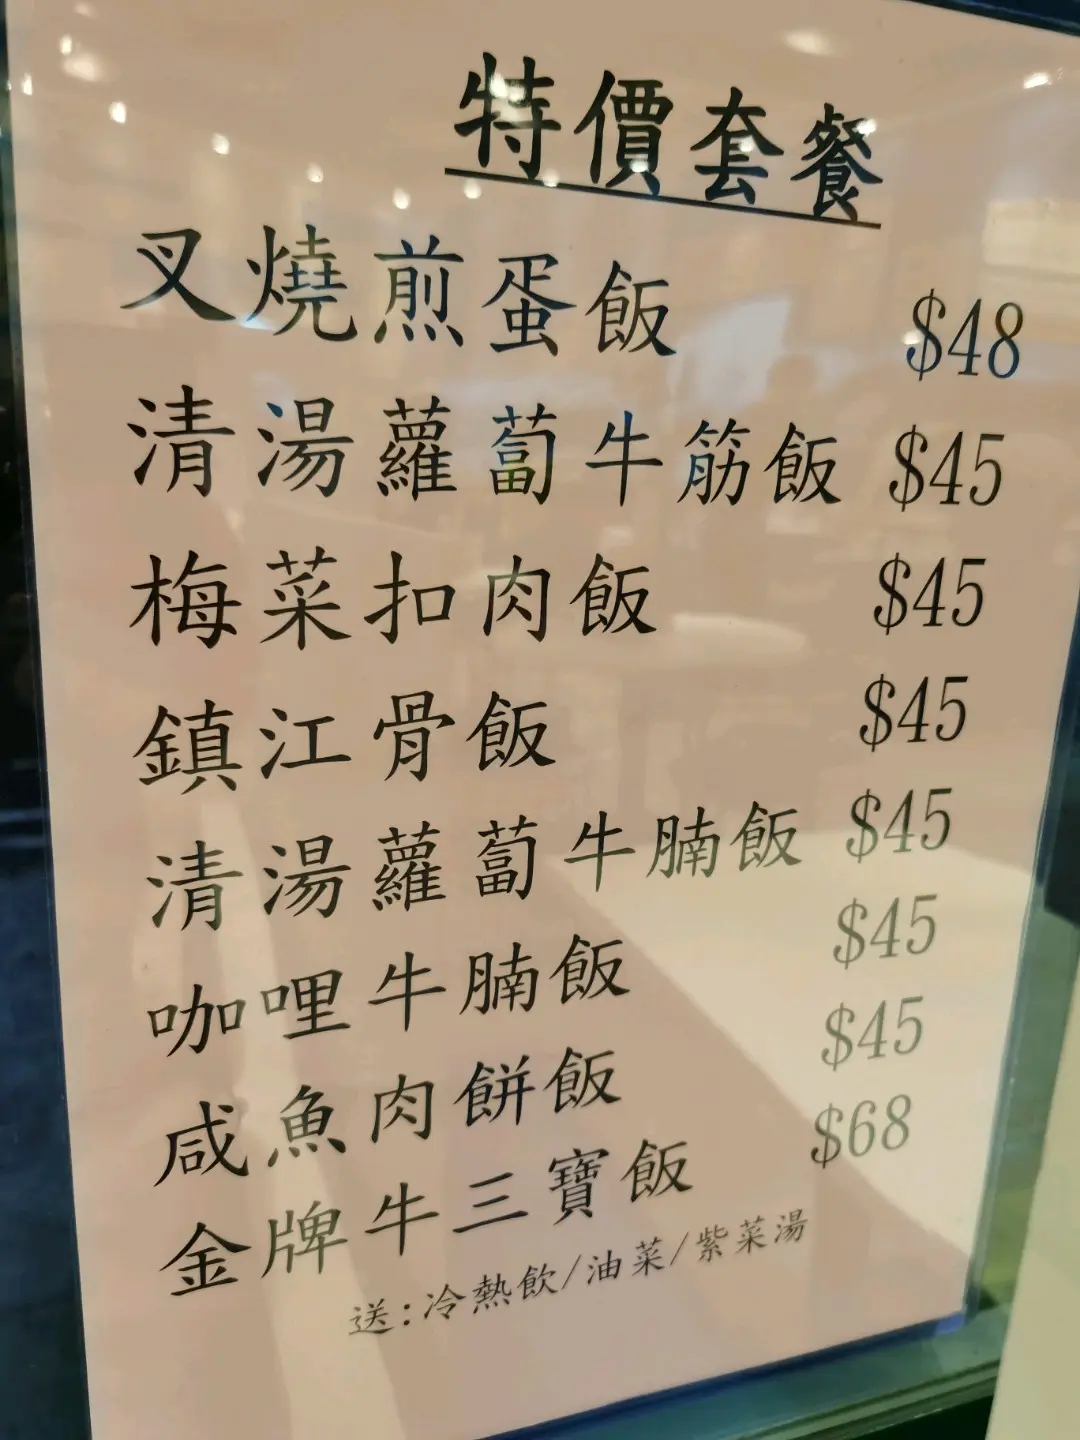 特價套餐
叉燒煎蛋飯 $48
清湯蘿蔔牛筋飯 $45
梅菜扣肉飯 $45
鎮江骨飯 $45
清湯蘿蔔牛腩飯 $45
咖哩牛腩飯 $45
咸魚肉餅飯 $45
金牌牛三寶飯 $68
送:冷熱飲/油菜/紫菜湯